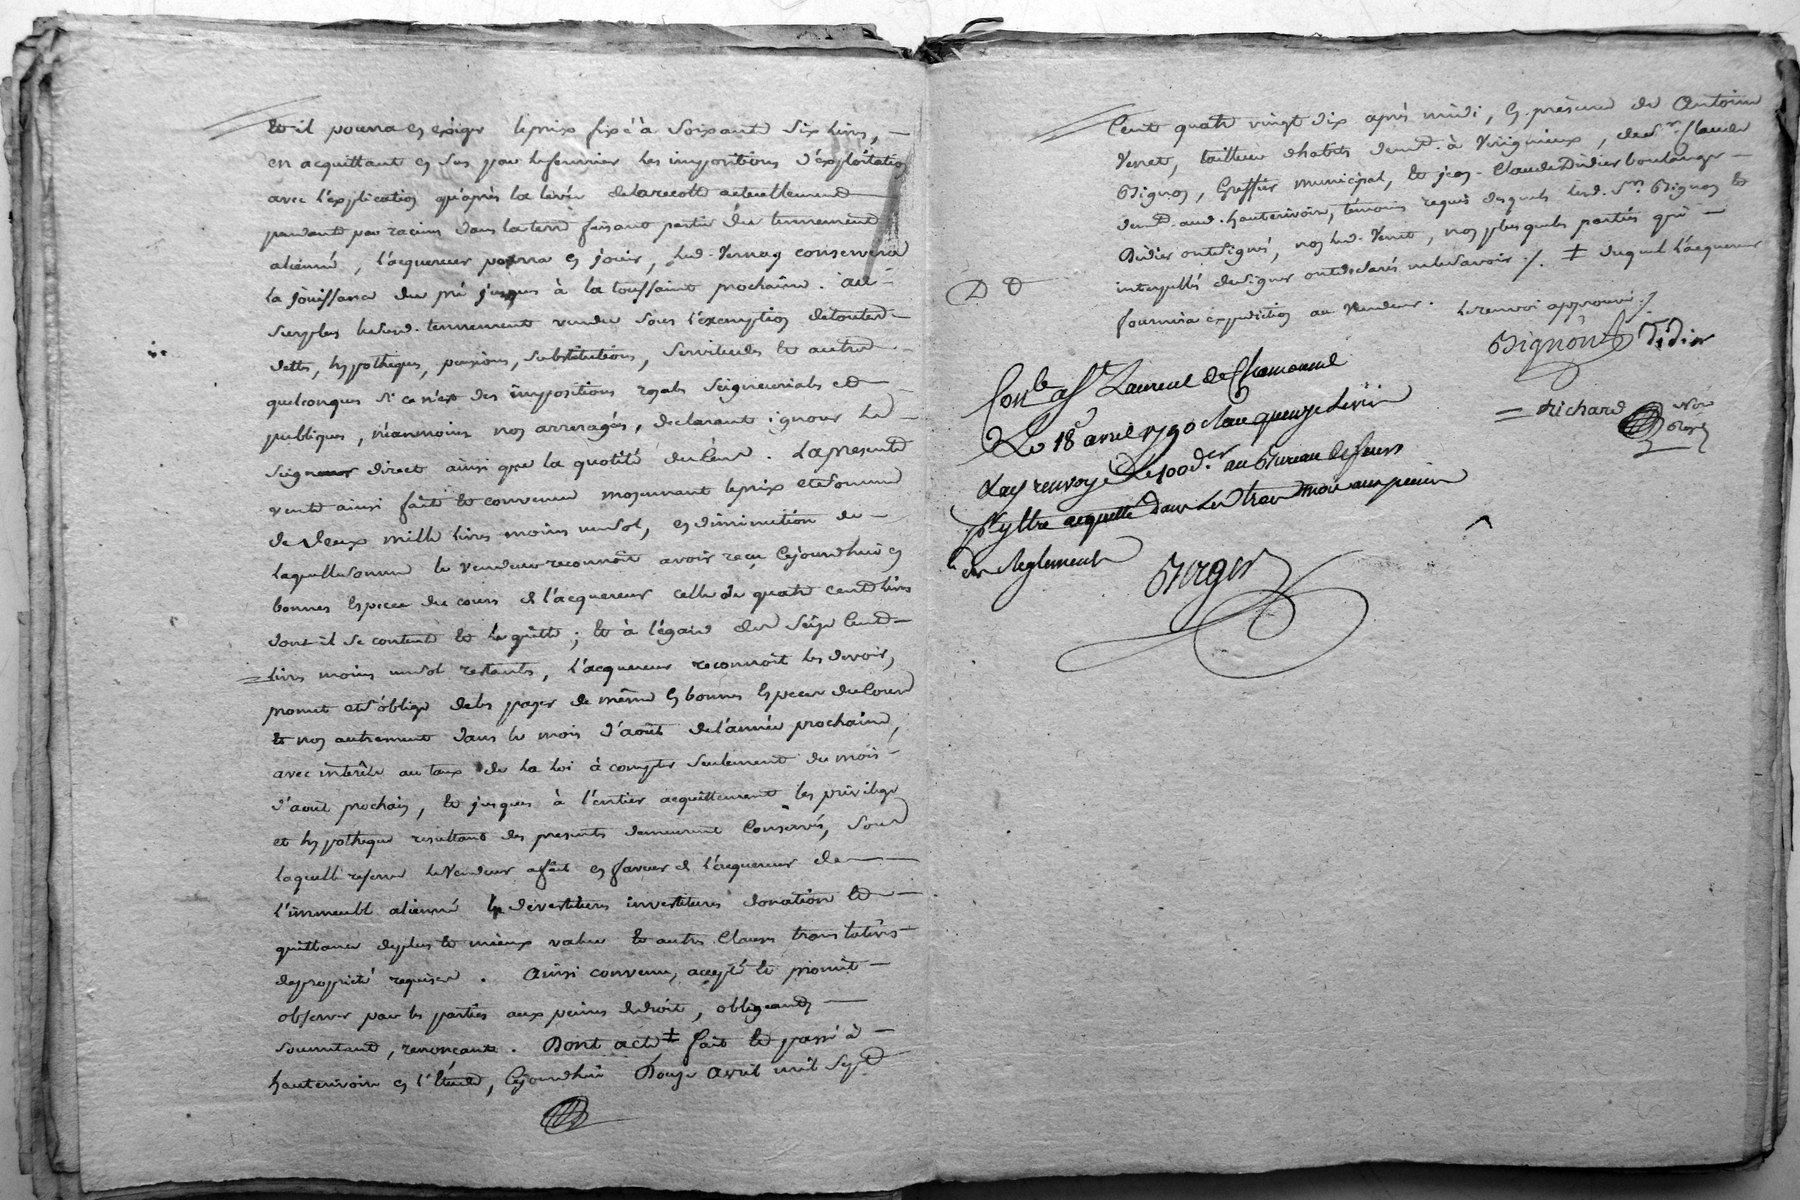 et il pourra en exiger le prix fixé à soixante six livres, —
en acquittant en sus par le fermier les impositions d'exploitation
avec l'explication qu'après la levée de la recolte actuellement
pendante par racines dans la terre faisant partie du tennement
aliené, l'acquereur pourra en jouir, led. Vernay conservera
la jouissance du pré jusques à la toussaint prochaine. au —
surplus led. tennement vendu sous l'exemption de toutes —
dettes, hypotheques, pensions, substitutions, servitudes et autres
quelconques si ce n'est des impositions royales seigneuriales et —
publiques, néanmoins non arreragés, declarant ignorer le —
seigneur direct ainsi que la quotité du cens. La presente
vente ainsi faite et convenue moyennant le prix et somme
de deux mille livres moins un sol, en diminution de —
laquelle somme le vendeur reconnoit avoir reçu cejourdhui en
bonnes especes du cours de l'acquereur celle de quatre cent livres
dont il se contente et le quitte; et à l'égard des seize cent —
livres moins un sol restants, l'acquereur reconnoit les devoir,
promet et s'oblige de les payer de même en bonnes especes du cours
et non autrement dans le mois d'août de l'année prochaine,
avec intérêts au taux de la loi à compter seulement du mois —
d'aout prochain, et jusques à l'entier acquittement les privilege
et hypotheque resultant des presents demeurent conservés, sous
laquelle reserve le vendeur a fait en faveur de l'acquereur de —
l'immeuble aliené les devestitures investitures donation et —
quittance de plus et mieux value et autres clauses translatives —
de propriété requises. Ainsi convenu, accepté et promit —
observer par les parties aux peines de droit, obligeant —
soumettant, renonçant. Dont acte ‡ fait et passé à —
hauterivoire en l'étude, cejourdhui Douze avril mil sept
cent quatre vingt dix après midi, en presence de Antoine
Verret, tailleur d'habits demt. à Virigneux, de sr. Claude
Bignon, Greffier municipal, et jean-Claude Didier boulanger —
demt. aud. hauterivoire, témoins requis desquels led. sr. Bignon et
Didier ont signé, non led. Verret, non plus que les parties qui —
interpellés de signer ont déclarés ne le savoir ./. ‡ duquel l'acquereur
fournira expedition au vendeur. Le renvoi approuvé ./.
Bignon Didier
= Richard Nore
Royal
Conlé a St Laurent de Chamousset
Le 18 avril 1790 reçu quinze livres
et ay renvoyé le 100e dr. au Bureau de feurs
pr y être acquitté dans les trois mois aux peines
des Reglements
Berger